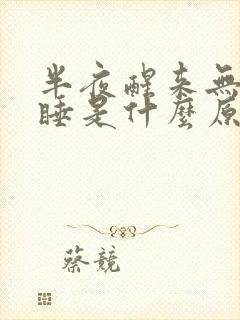 半夜醒來無
睡是什麼原
蔡競